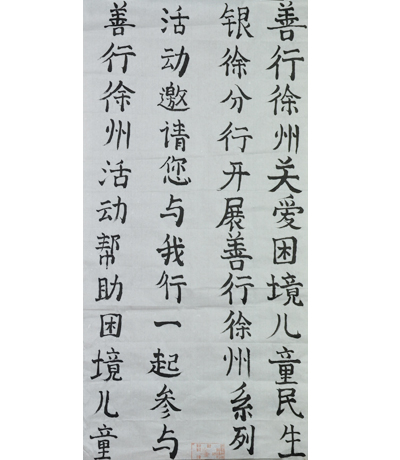 善行徐州关爱困境儿童民生
银徐分行开展善行徐州系列
活动邀请您与我行一起参与
善行徐州活动帮助困境儿童